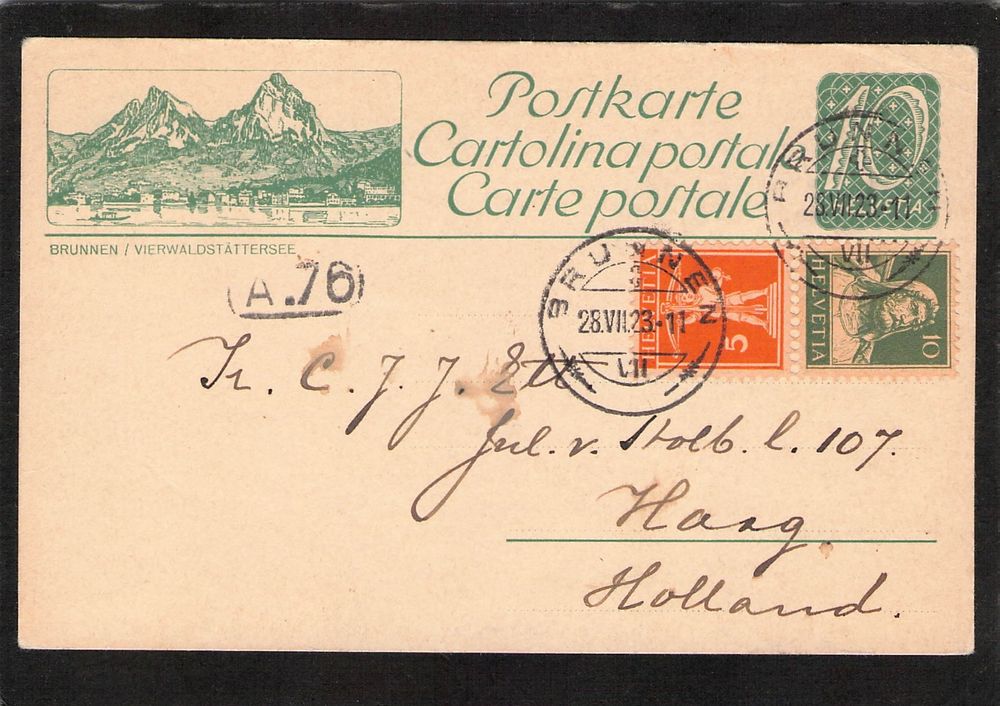 Postkarte
Cartolina postale
Carte postale
10
BRUNNEN / VIERWALDSTÄTTERSEE
A.76
BRUNNEN
28.VII.23-11
VII
BRUNNEN
28.VII.23-11
VII
HELVETIA
5
HELVETIA
10
C. J. J. Ett
Jul. v. Stolb. l. 107.
Haag.
Holland.